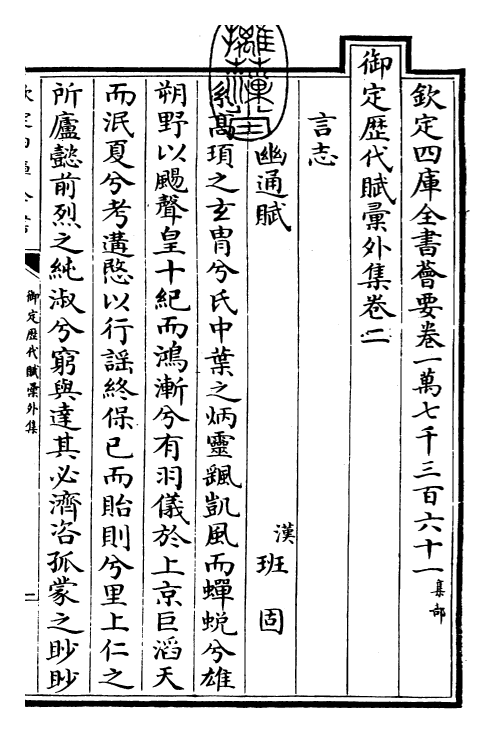 欽定四庫全書薈要卷一萬七千三百六十一集部
御定歴代賦彙外集卷二
言志
幽通賦 漢 班固
系髙頊之玄胄兮氏中葉之炳靈飊凱風而蟬蛻兮雄
朔野以颺聲皇十紀而鴻漸兮有羽儀於上京巨滔天
而泯夏兮考遘愍以行謡終保已而貽則兮里上仁之
所廬懿前烈之純淑兮窮與達其必濟咨孤蒙之眇眇
御定歴代賦彙外集
一